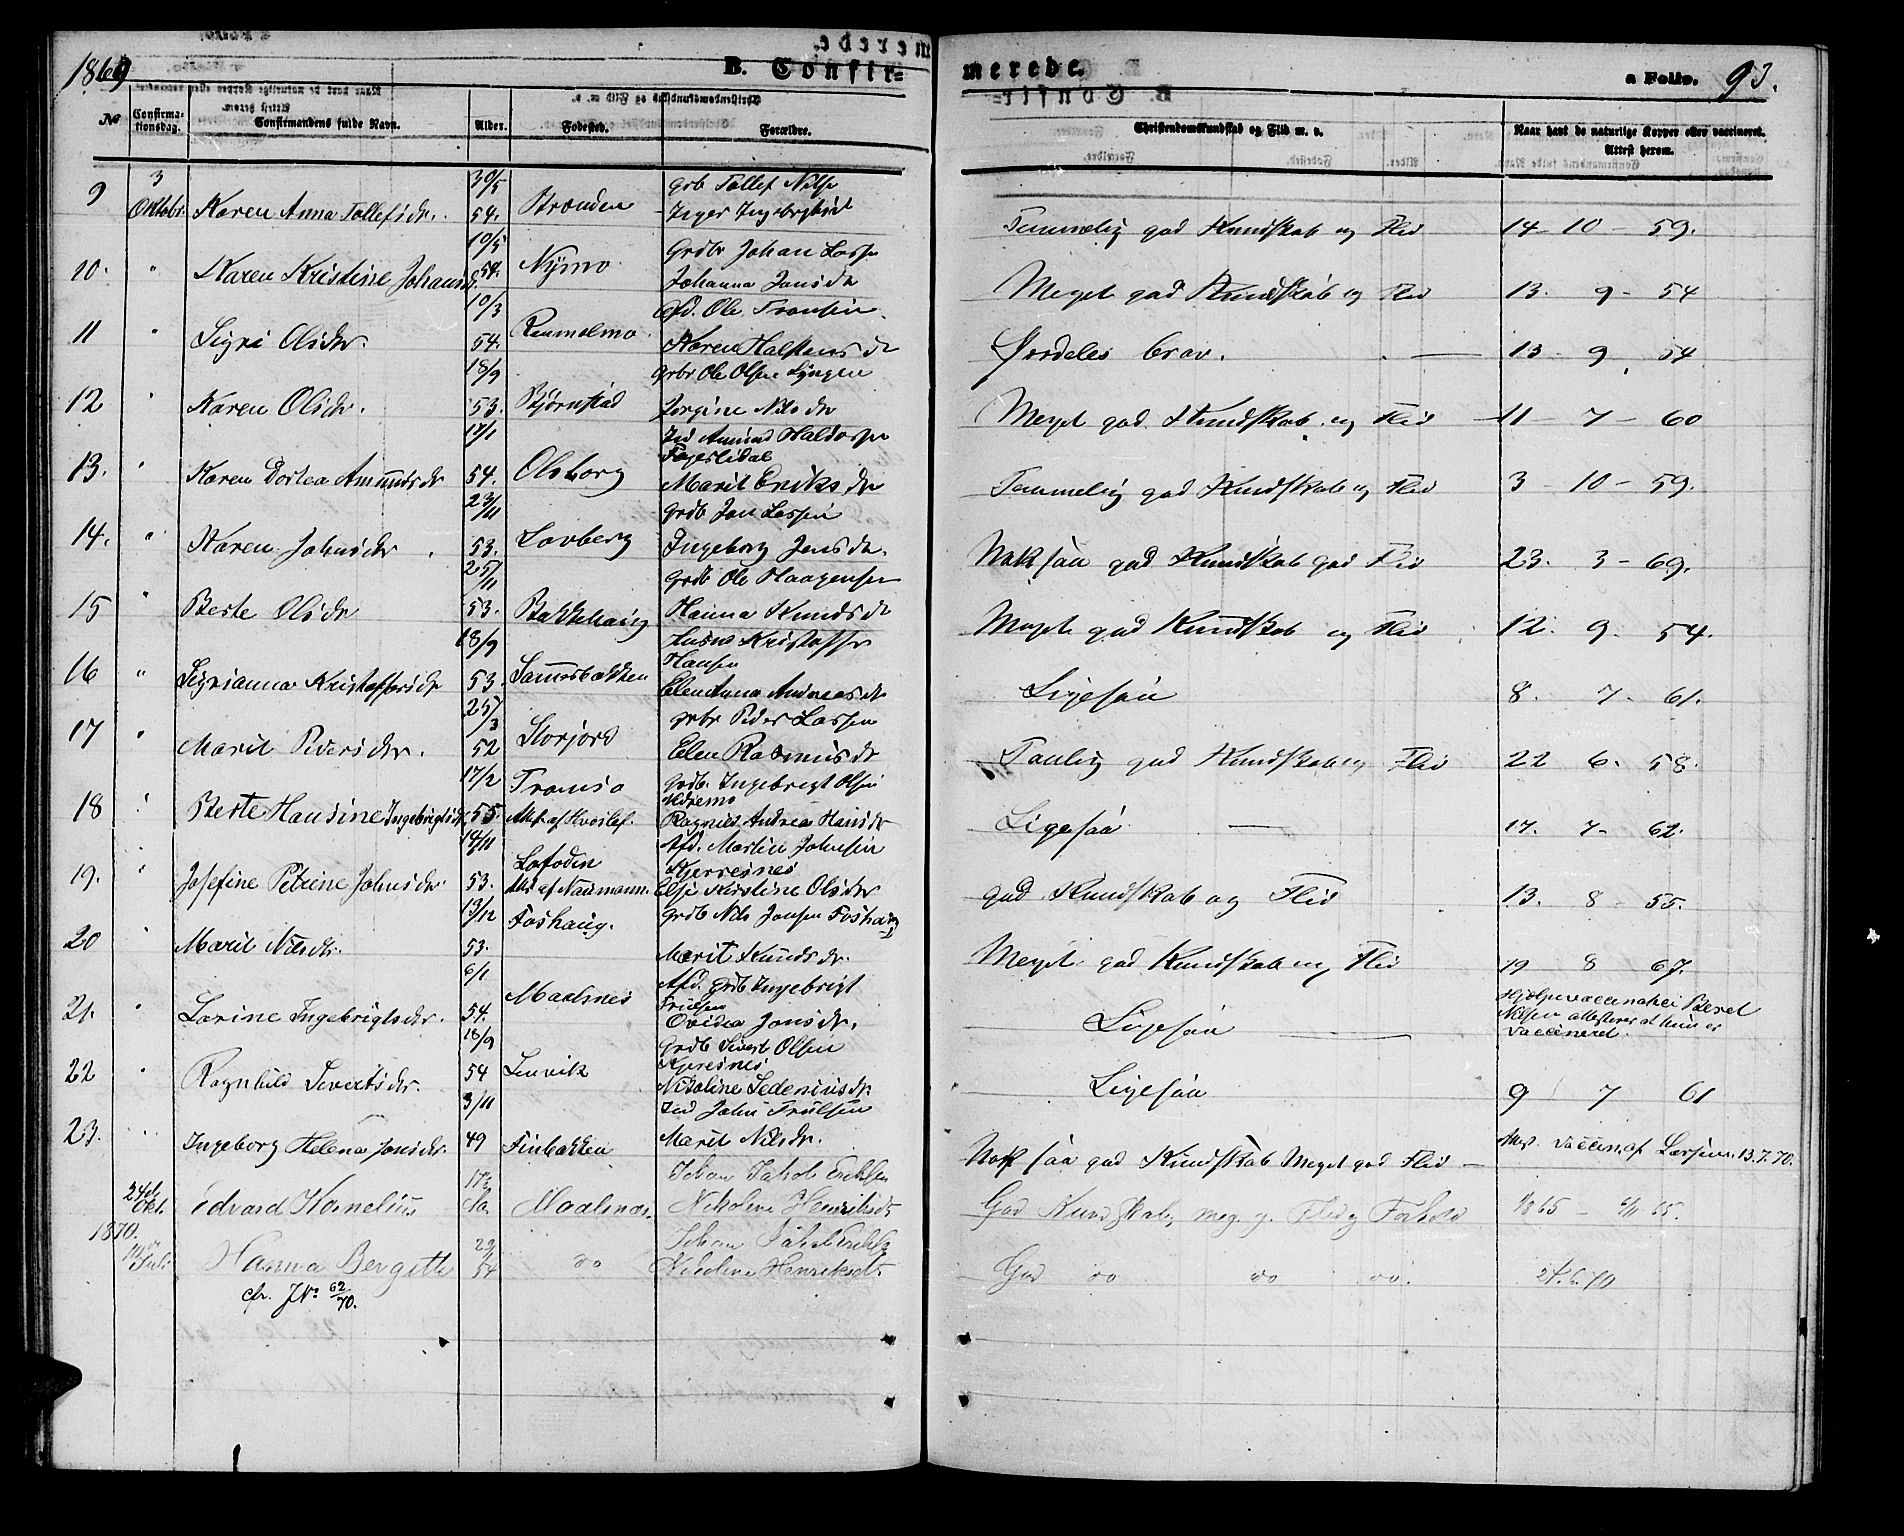 1869
B. Confir= merede. a Folio. 93.
No Confirmationsdag. Confirmandens fulde Navn. Alder. Fødested. Forældre. Christendomskundskab og Flid m. v. Naar havt de naturlige Kopper eller vaccineret. Attest herom.
9 3 Oktobr. Karen Anna Tollefsdr. 30/5 54. Branden Grb Tollef Nilsn
Temmelig god Kundskab og Flid 14 10 – 59.
10. " Karen Kristine Johansdr 10/5 54. Nymo Grdbr Johan Larsen
Johanna Jonsdr Meget god Kundskab og Flid 13. 9 – 54
11 " Sigri Olsdr. 10/3 54. Rammelmo Gfd. Ole Fransen
Karen Halstensdr Særdeles brav. 13 – 9 54
12 " Karen Olsdr. 18/9 53. Bjørnstad Grbr Ole Olsen Lyngen
Jorgine Nilsdr Meget god Kundskab og Flid 11 – 7 – 60
13. " Karen Dortea Amundsdr 12/1 54. Olsborg Ind Amund Haldorsen
Fagerlidal
Marit Eriksdr Temmelig god Kundskab og Flid 3 – 10 – 59.
14. " Karen Johnsdr 23/11 53. Lavberg Grdb Jon Larsen
Ingeborg Jensdr. Nok saa god Kundskab god Flid 23. 3 – 69.
15 " Berte Olsdr 25/11 53. Bakkehaug Grdb Ole Haagensen
Hanna Knudsdr Meget god Kundskab og Flid 12. 9. 54.
16 " Sigrianna Kristoffersdr 18/9 53. Sannesbakken Husm Kristoffer
Hansen
Elen Anna Andreasdr Ligesaa 8. 7 – 61.
17 " Marit Pedersdr. 25/3 52 Storjord Grbr Peder Larsen
Elen Rasmusdr Taalig god Kundskab og Flid 22 6. 58.
18 " Berte Hansine Ingebrigtsdr 17/2 55. Tromsø Grdb. Ingebrigt Olsen
Moremo
Att. af Kvoslef. Ragnild Andrea Hansdr Ligesaa 17. 7 – 62.
19. " Josefine Petrine Johnsdr. 14/11 53. Lofoden Afd. Martin Johnsen
Kjerresnes
Att af Naumann. Elsje Kristine Olsdr god Kundskab og Flid 13. 8 – 55.
20 " Marit Nilsdr. 13/12 53. Foshaug. Grdb Nils Jonsen Foshaug
Marit Knudsdr. Meget god Kundskab og Flid 19 8 67.
21. " Lorine Ingebrigtsdr. 6/1 54. Maalsnes Afd. Grdb Ingebrigt
Trulsen
Ovidia Jonsdr. Ligesaa Hjælpevaccinatrice Beret
Nilsen attesterer at hun er
vaccineret.
22 " Ragnhild Sivertsdr. 18/9 54 Lenvik Grdb Sivert Olsen
Kjeresnes
Nikoline Sedeniusdr. Ligesaa 9 7 61
23. " Ingeborg Helena Jonsdr. 3/11 49 Finbakken Ind John Trulsen
Marit Nilsdr. Nok saa god Kundskab Meget god Flid – Anv. vaccin. af Larsen 13.7.70.
24de Okt. Edvard Kornelius Maalsnæs. Johan Jakob Eriksen
Nikoline Henriksdr God Kundskab, meg. g. Flid og Forhold 1/8 65 – 6/11 65.
1870.
Juli Hanna Bergitte 54 do Johan Jakob Eriksen
Nikoline Henriksdr God do do do. 27.6.70
cfr. JNo 62/70.